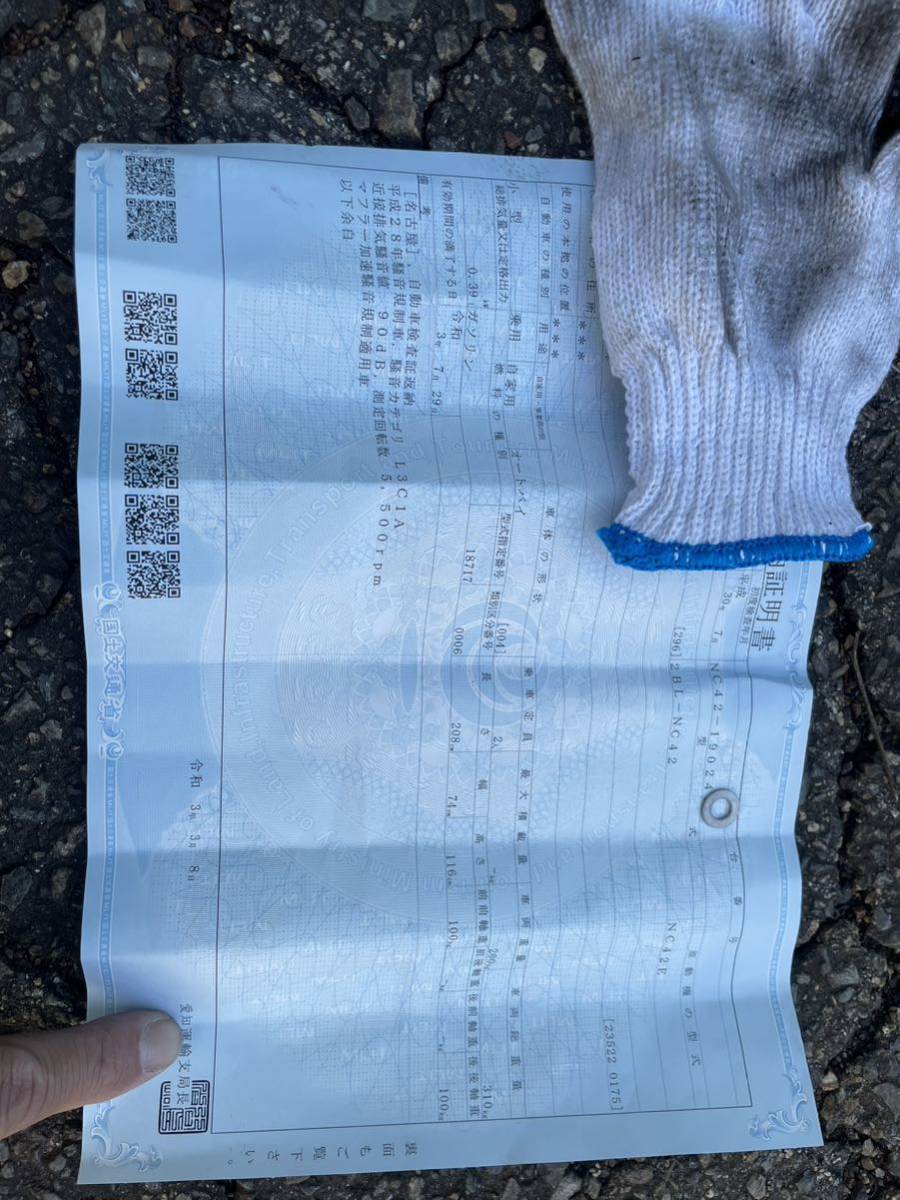 証明書
初度検査年月
平成 30年 7月
台 番 号
NC42-1902
型 式
原 動 機 の 型 式
[296] 2BL-NC42
NC42E
[23522 0175]
の住所
使用の本拠の位置
***
自動車の種別 用途 自家用・事業用の別 車体の形状 乗車定員 最大積載量 車両重量 車両総重量
小型 乗用 自家用 オートバイ [004] 2人 -kg 200kg 310kg
総排気量又は定格出力 燃料の種別 型式指定番号 類別区分番号 長さ 幅 高さ 前前軸重 前後軸重 後前軸重 後後軸重
0.39 ガソリン 18717 0006 208cm 74cm 116cm 100kg -kg -kg 100kg
有効期間の満了する日 令和 3年 7月 29日
備考
[名古屋],自動車検査証返納
平成28年騒音規制車,騒音カテゴリ L3C1A
近接排気騒音値 90dB,測定回転数 5,500rpm
マフラー加速騒音規制適用車
以下余白
令和 3年 3月 8日
愛知運輸支局長
国土交通省
裏面もご覧下さい。